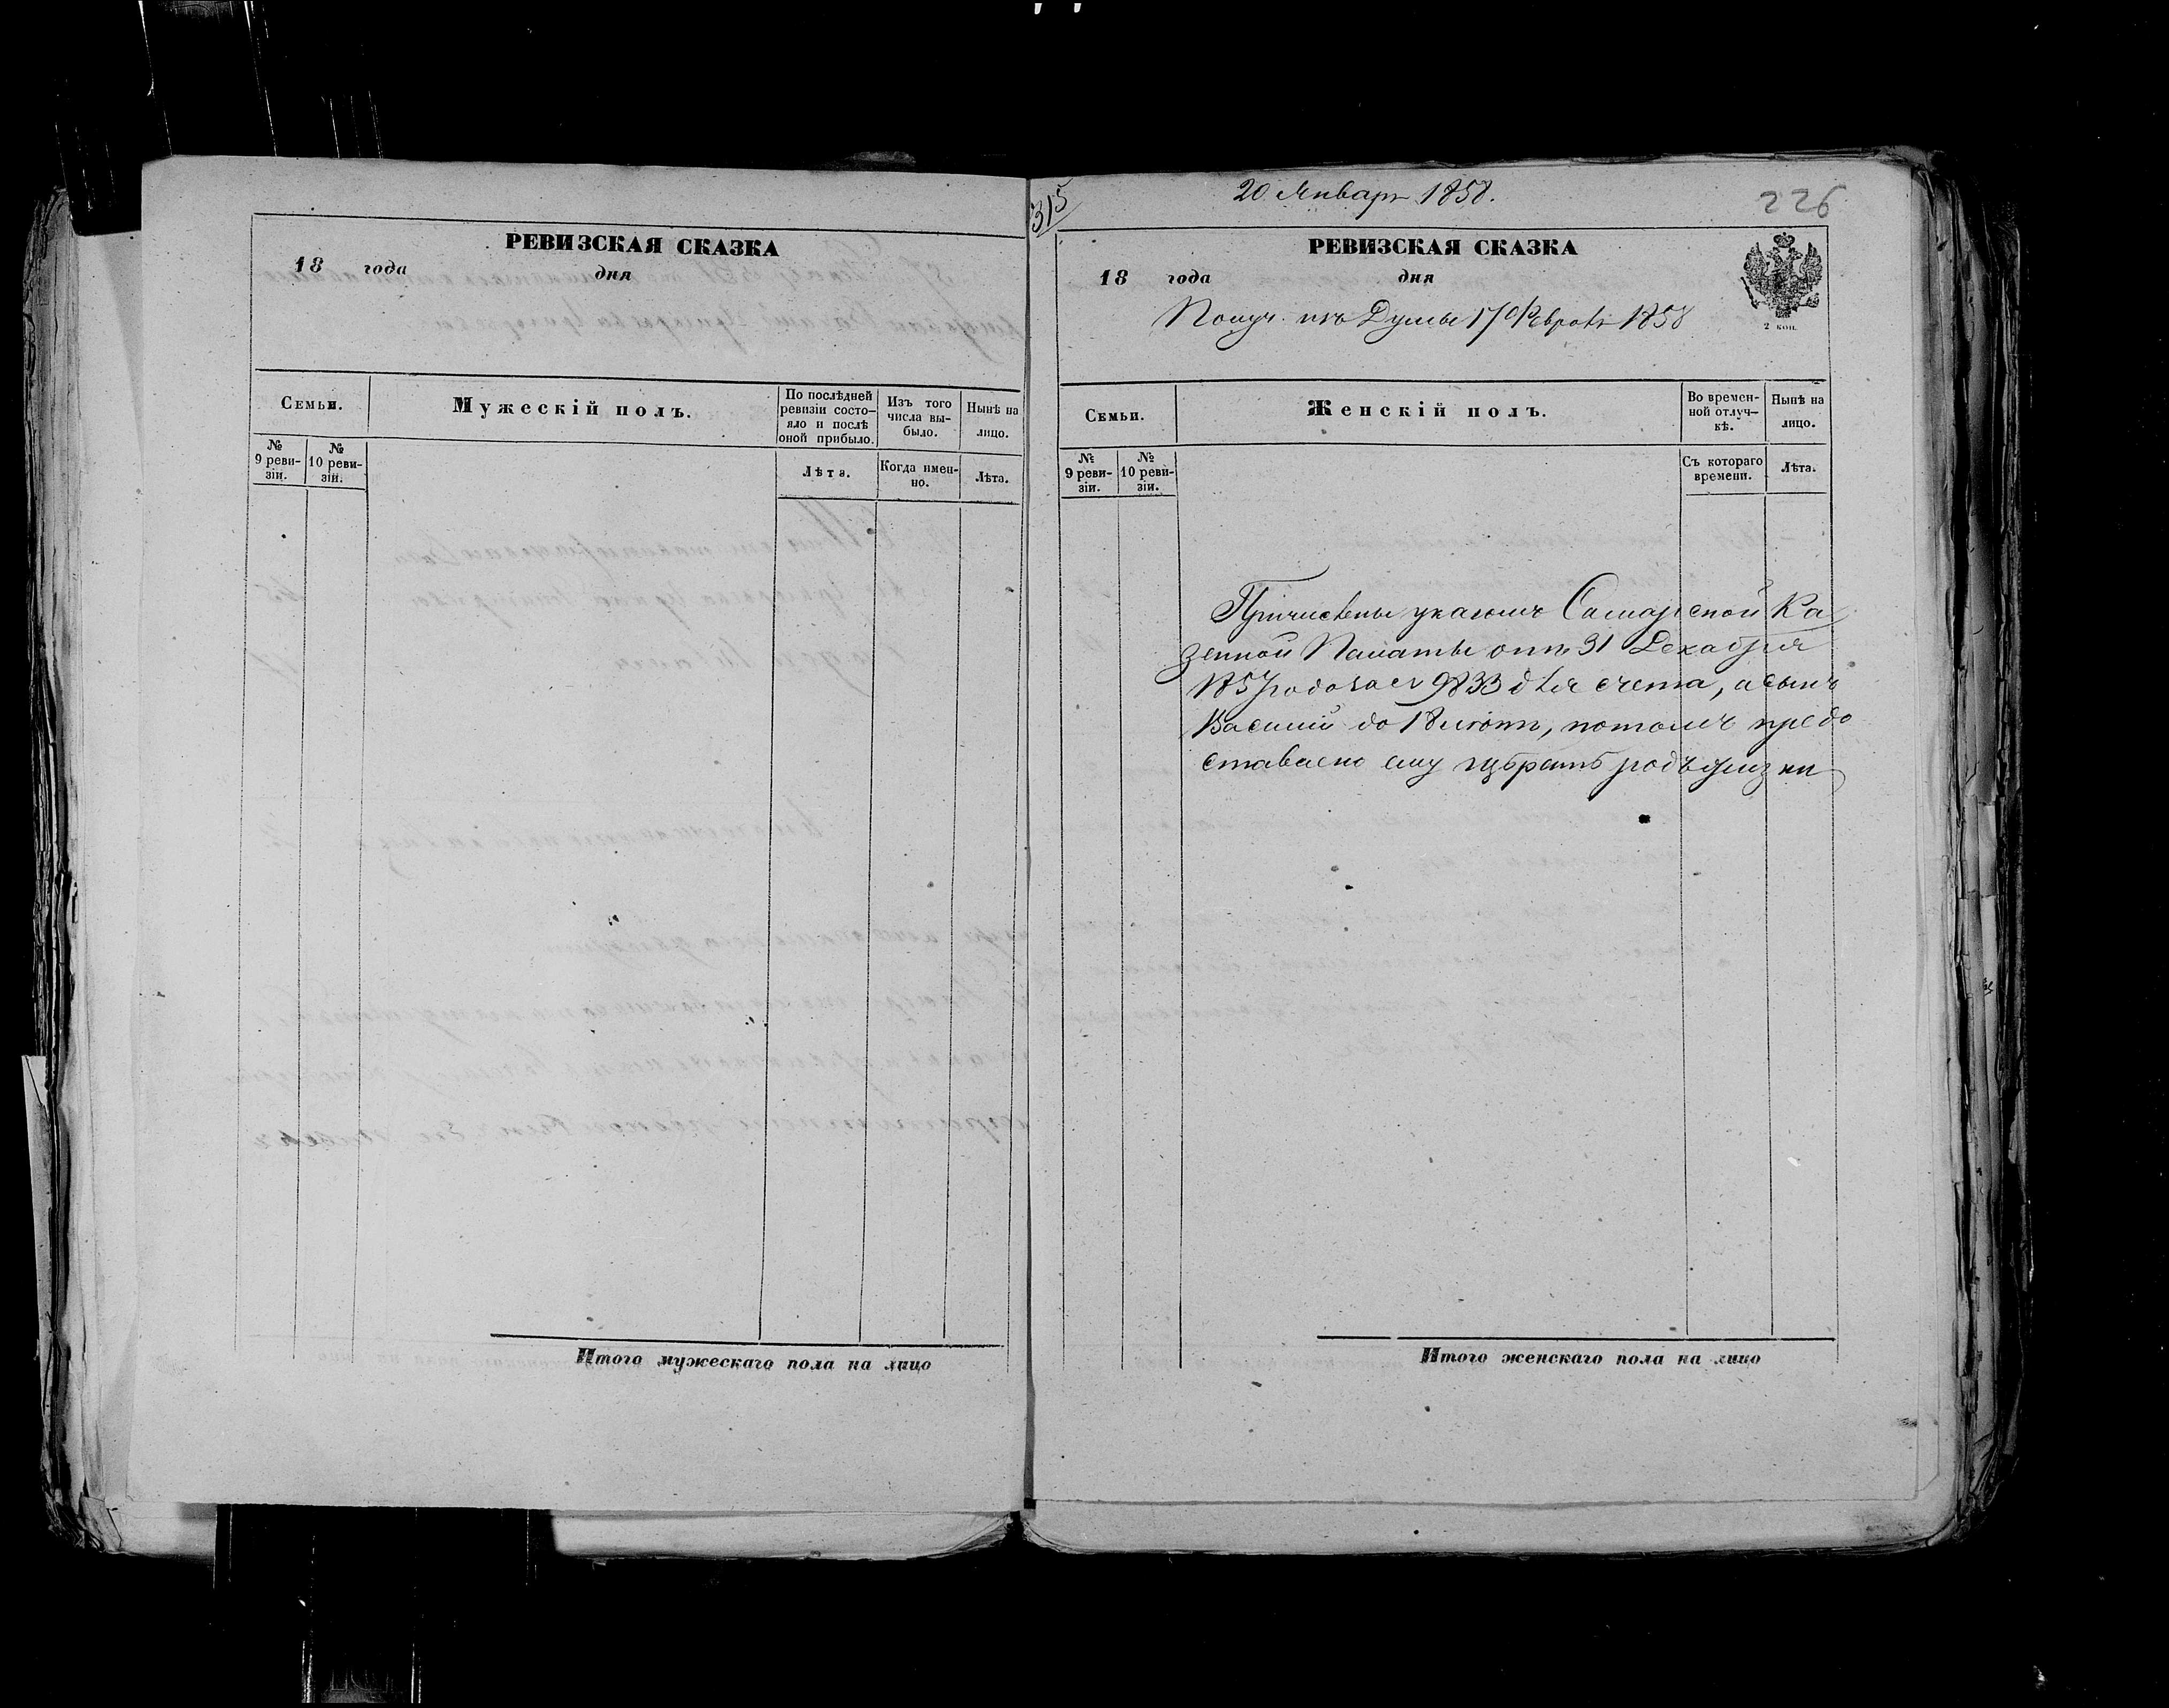 РЕВИЗСКАЯ СКАЗКА
18 года дня
Семьи.
Мужескій полъ.
По послѣдней ревизіи состо-
яло и послѣ оной прибыло.
Изъ того числа вы-
было.
Нынѣ на лицо.
№ 9 реви-
зіи.
№ 10 реви-
зіи.
Лѣта.
Когда имен-
но.
Лѣта.
Итого мужескаго пола на лицо
315
20 Январ 1858.
226
РЕВИЗСКАЯ СКАЗКА
18 года дня
2 коп.
Получ. изъ Думы 17 Феврал 1858
Семьи.
Женскій полъ.
Во времен-
ной отлуч-
кѣ.
Нынѣ на лицо.
№ 9 реви-
зіи.
№ 10 реви-
зіи.
Съ котораго времени.
Лѣта.
Причислены указомъ Самарской Ка
зенной Палаты отъ 31 Декабря
1857 года за № 9833 для счета, а сынъ
Василий до 18 лѣтъ, потомъ предо
ставлено ему избрать родъ жизни
Итого женскаго пола на лицо